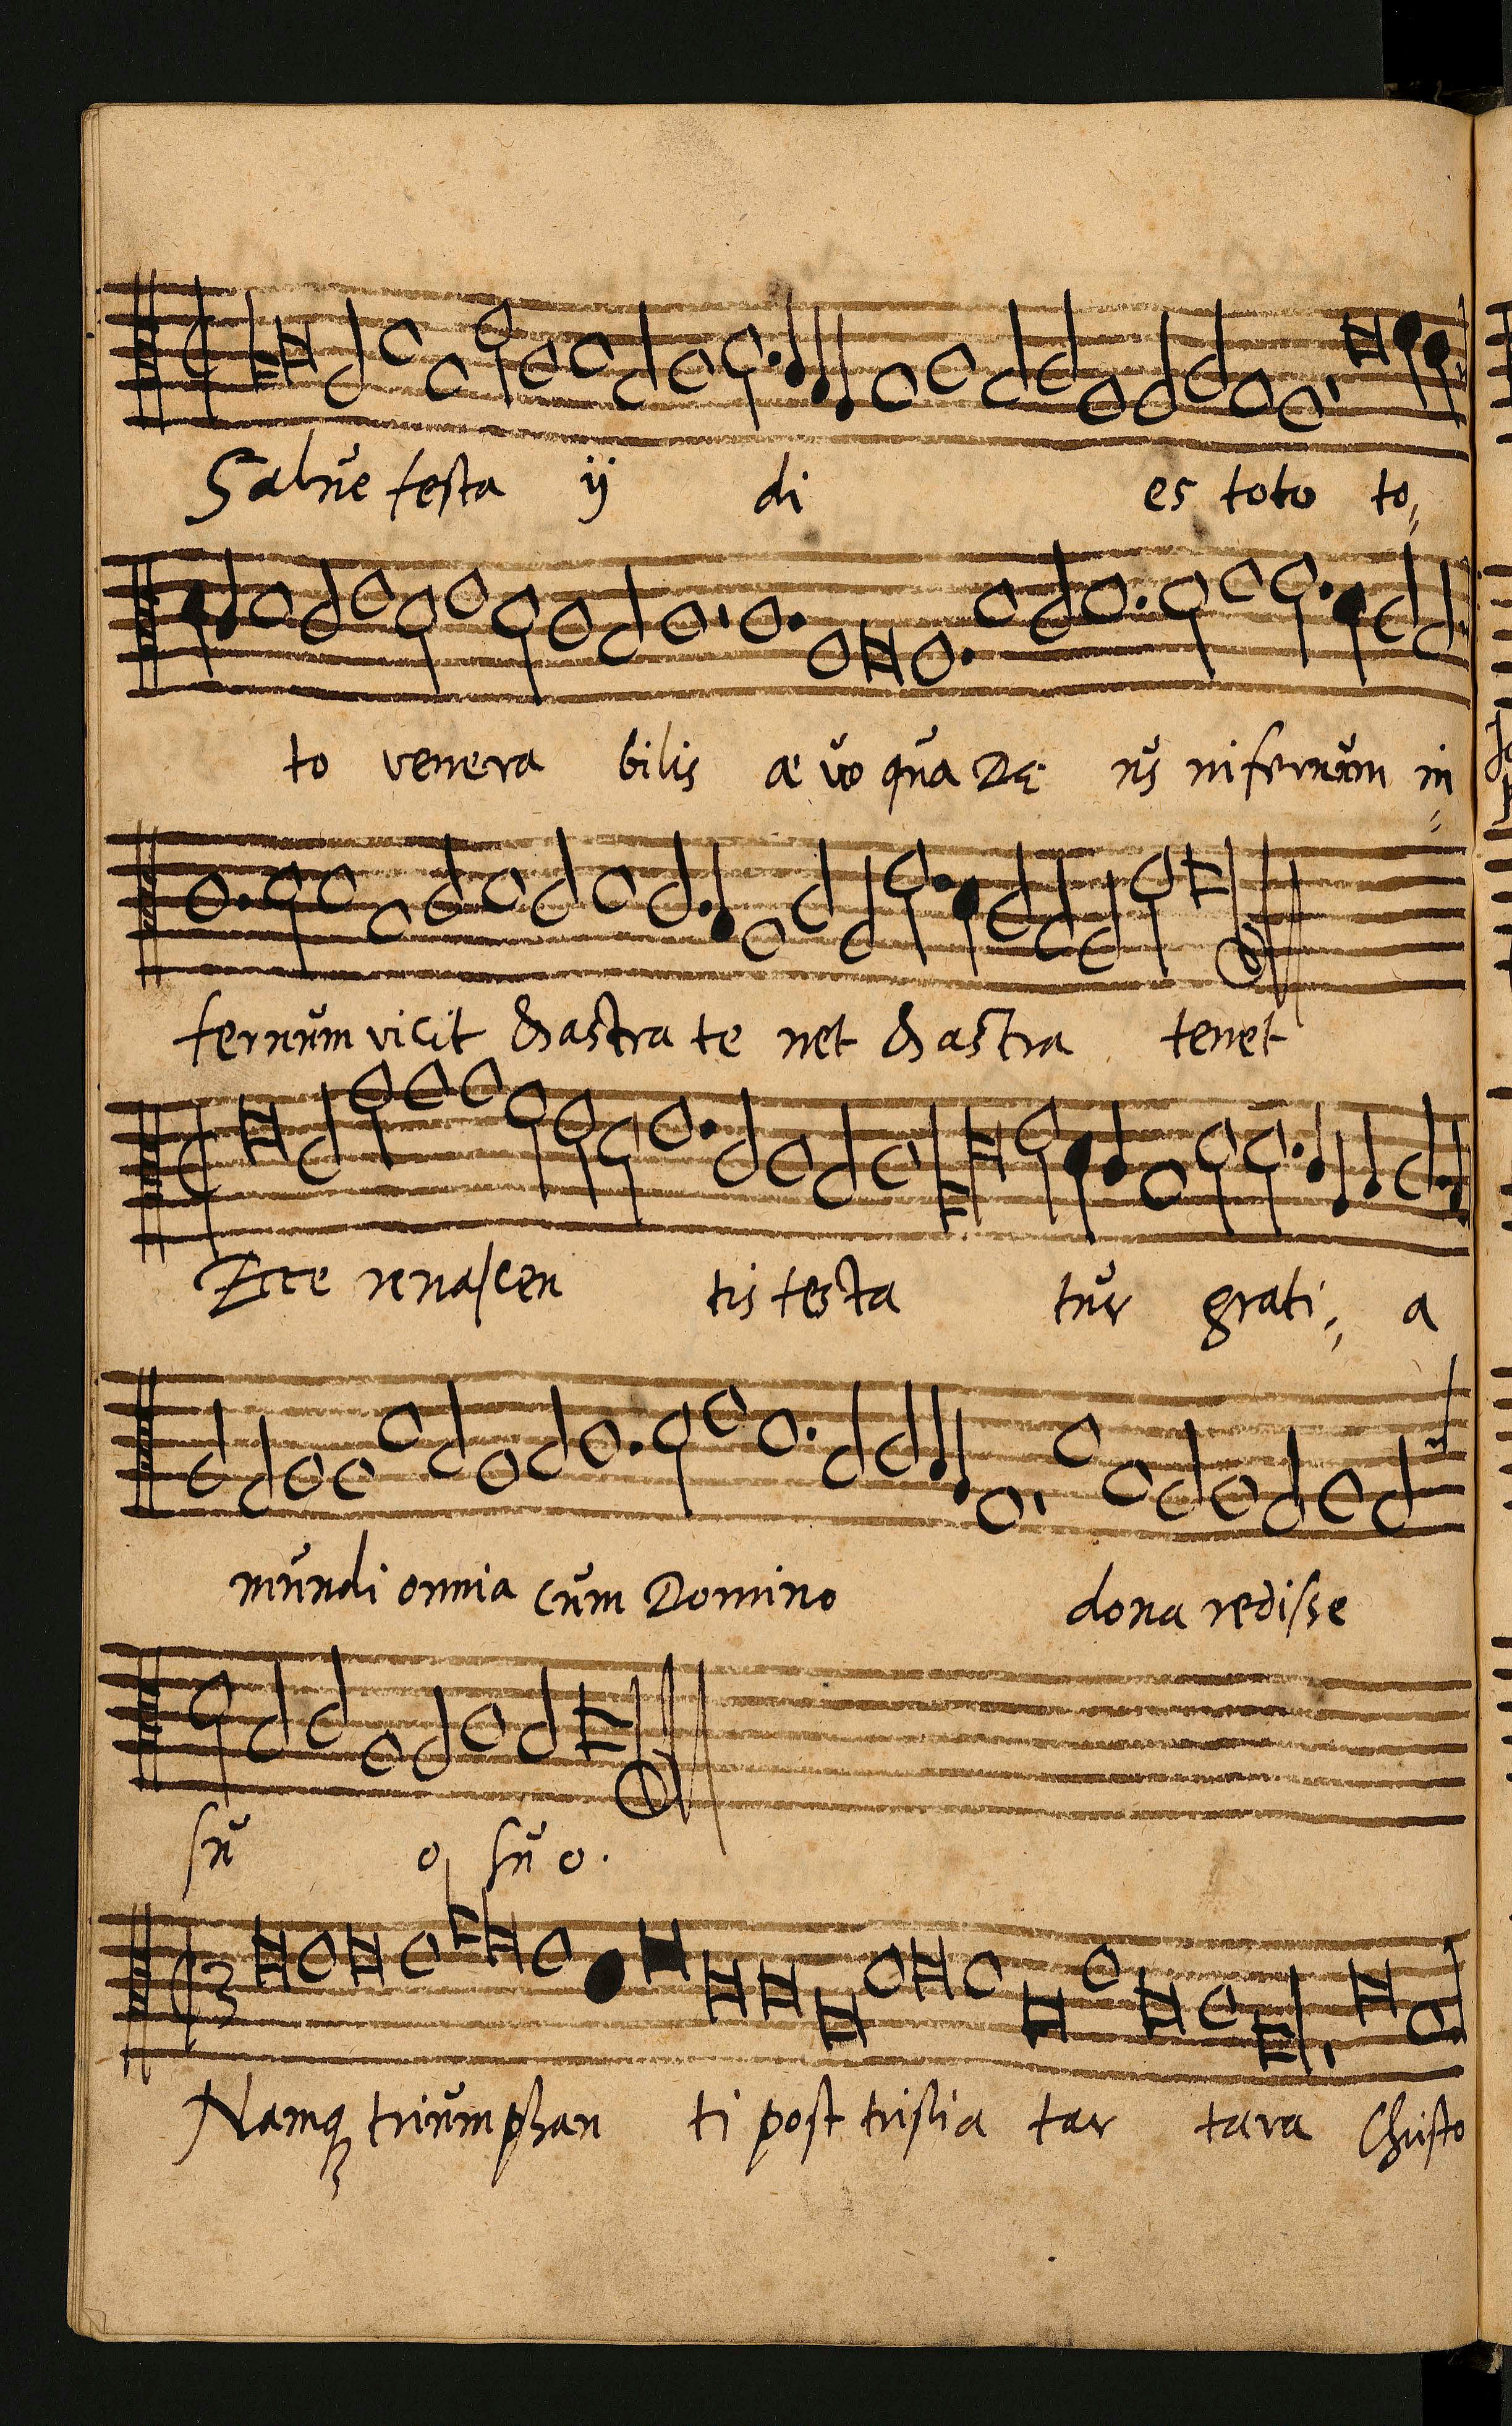 Salue festa ij di es toto to=
to venera bilis æ vo qua De us infernum in=
fernum vicit & astra te net & astra tenet
Ecce renascen tis testa tur grati= a
mundi omnia cum Domino dona redisse
su o suo.
Namq; triumphan ti post tristia tar tara Christo